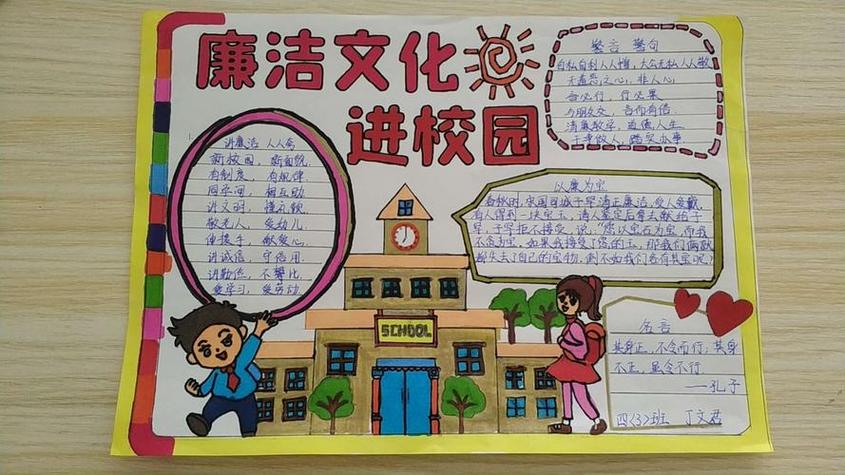 廉洁文化
进校园
警言 警句
自私自利人人憎，大公无私人人敬
无羞恶之心，非人心
言必行，行必果
与朋友交，言而有信
清廉教学，道德人生
干净做人，踏实办事
讲廉洁 人人夸
新校园，新面貌
有制度，有规律
同学间，相互助
讲文明，懂礼貌
敬老人，爱幼儿
伸援手，献爱心
讲诚信，守信用
讲勤俭，不攀比
爱学习，爱劳动
以廉为宝
春秋时，宋国司城子罕清正廉洁，受人爱戴，
有人得到一块宝玉，请人鉴定后拿去献给子
罕，子罕拒不接受，说："您以宝石为宝，而我
不贪为宝，如果我接受了您的玉，那我们俩就
都失去了自己的宝物，倒不如我们各有其宝呢？
SCHOOL
名言
其身正，不令而行；其身
不正，虽令不行
——孔子
四(3)班 丁文君